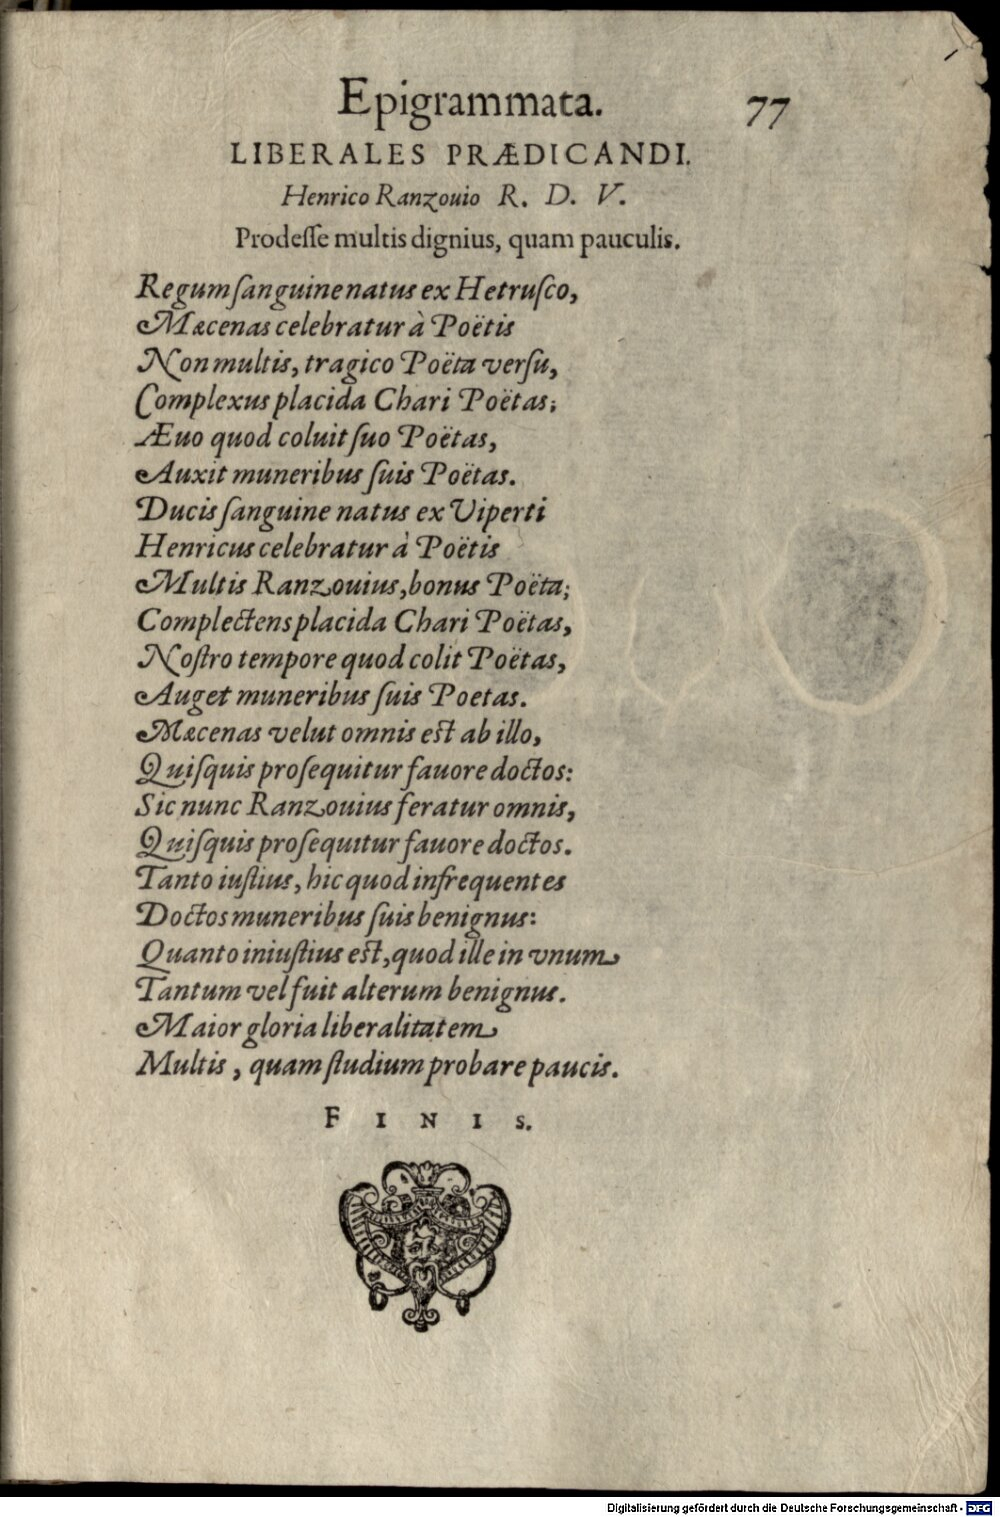 Epigrammata. 77
LIBERALES PRÆDICANDI.
Henrico Ranzouio R. D. V.
Prodeſſe multis dignius, quam pauculis.
Regum ſanguine natus ex Hetruſco,
Mæcenas celebratur à Poëtis
Non multis, tragico Poëta verſu,
Complexus placida Chari Poëtas;
Æuo quod coluit ſuo Poëtas,
Auxit muneribus ſuis Poëtas.
Ducis ſanguine natus ex Viperti
Henricus celebratur à Poëtis
Multis Ranzouius, bonus Poëta;
Complectens placida Chari Poëtas,
Noſtro tempore quod colit Poëtas,
Auget muneribus ſuis Poetas.
Mæcenas velut omnis est ab illo,
Quiſquis proſequitur fauore doctos:
Sic nunc Ranzouius feratur omnis,
Quiſquis proſequitur fauore doctos.
Tanto iuſtius, hic quod infrequentes
Doctos muneribus ſuis benignus:
Quanto iniuſtius est, quod ille in vnum
Tantum vel fuit alterum benignus.
Maior gloria liberalitatem
Multis, quam ſtudium probare paucis.
FINIS.
Digitalisierung gefördert durch die Deutsche Forschungsgemeinschaft - DFG